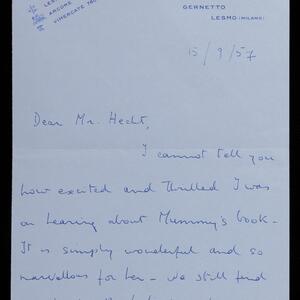 LES
ARCORE
VIMERCATE 760
GERNETTO
LESMO (MILANO)
15/9/57
Dear Mr. Hecht,
I cannot tell you
how excited and thrilled I was
on hearing about Mummy's book -
It is simply wonderful and so
marvellous for her - We still find